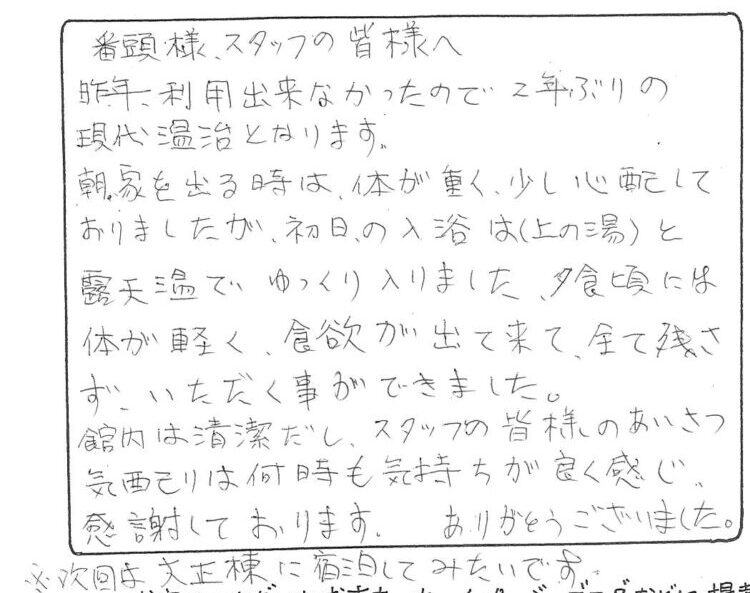 番頭様、スタッフの皆様へ
昨年、利用出来なかったので2年ぶりの
現代温治となります。
朝、家を出る時は、体が重く、少し心配して
おりましたが、初日の入浴は(上の湯)と
露天温で、ゆっくり入りました、夕食頃には
体が軽く、食欲が出て来て、全て残さ
ず、いただく事ができました。
館内は清潔だし、スタッフの皆様のあいさつ
気配りは何時も気持ちが良く感じ、
感謝しております。 ありがとうございました。
※次回は大正棟に宿泊してみたいです。